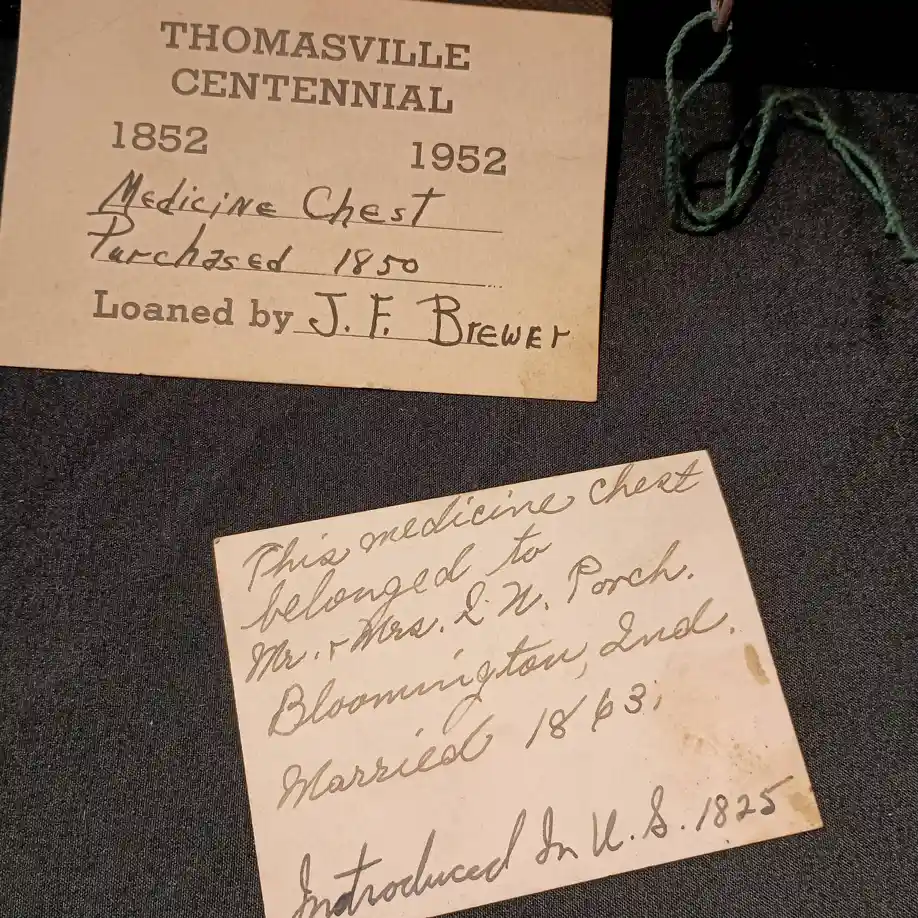 THOMASVILLE
CENTENNIAL
1852 1952
Medicine Chest
Purchased 1850
Loaned by J. F. Brewer
This medicine chest
belonged to
Mr. + Mrs. I. N. Porch.
Bloomington, Ind.
Married 1863;
Introduced In U.S. 1825